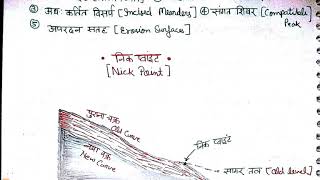 ③ अधः कर्तित विसर्प [Incised Meanders] ④ संगत शिखर [Compatible Peak
⑤ अपरदन सतह [Erosion Surfaces]
• निक प्वाइंट •
[Nick Point]
पुराना वक्र
Old Curve
निक प्वाइंट
नया वक्र
New Curve
सागर तल [Old level]